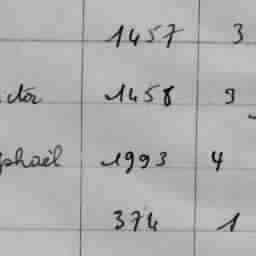 1457 3
ctor 1458 9
phaël 1993 4
374 1